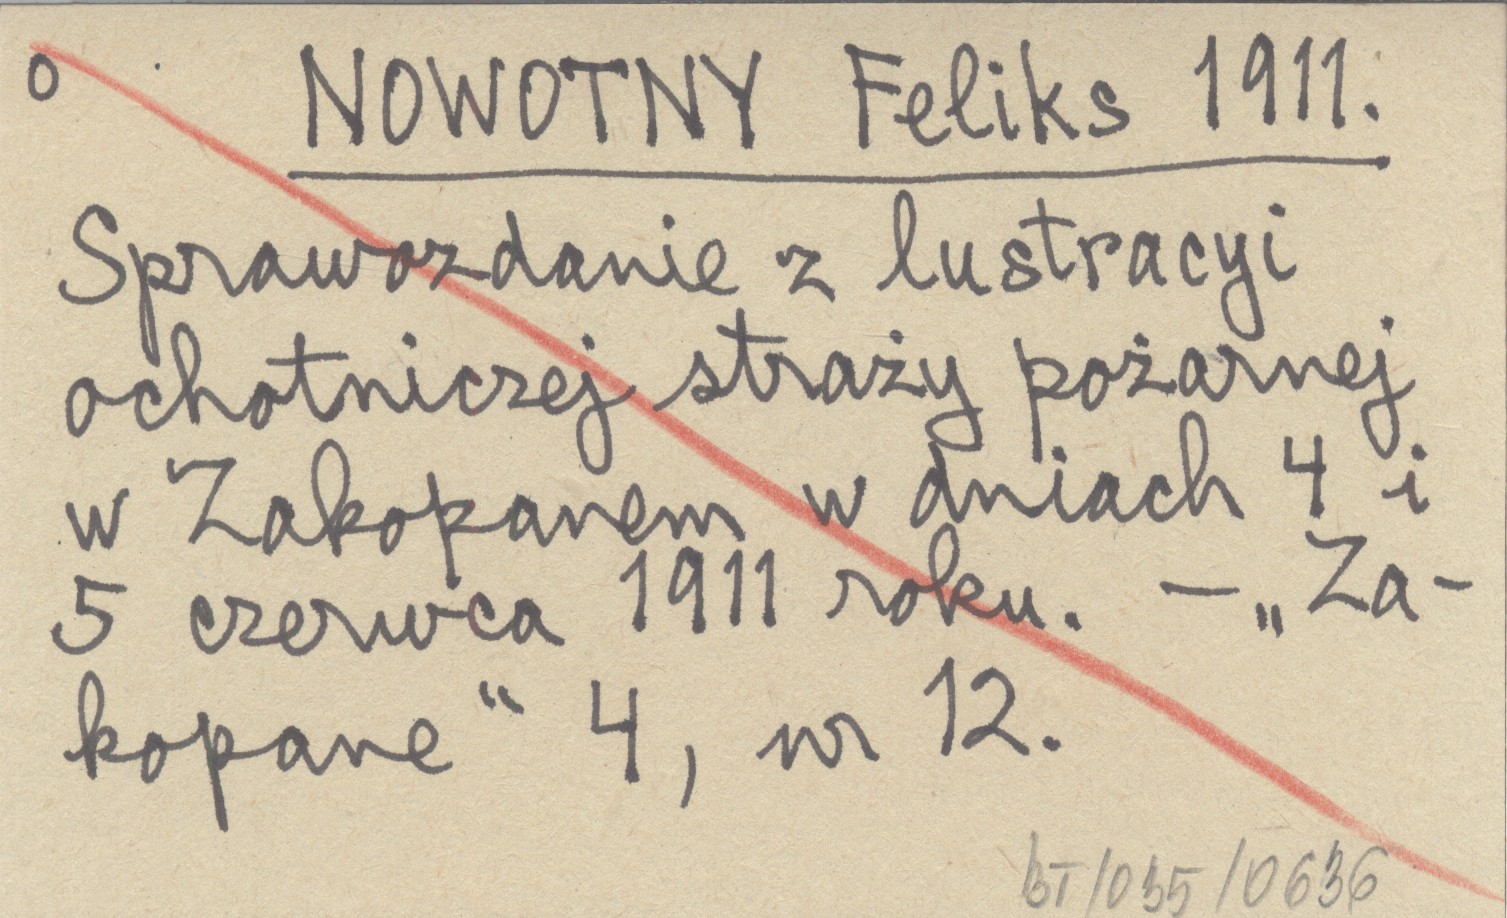 o NOWOTNY Feliks 1911.
Sprawozdanie z lustracyi
ochotniczej straży pożarnej
w Zakopanem w dniach 4 i
5 czerwca 1911 roku. — „Za-
kopane“ 4, nr 12.
BT/035/0636